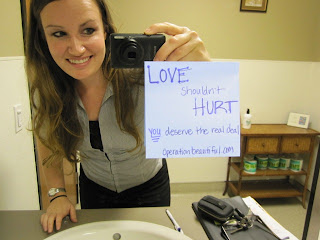 LOVE
shouldn't
HURT
you deserve the real deal
operationbeautiful.com